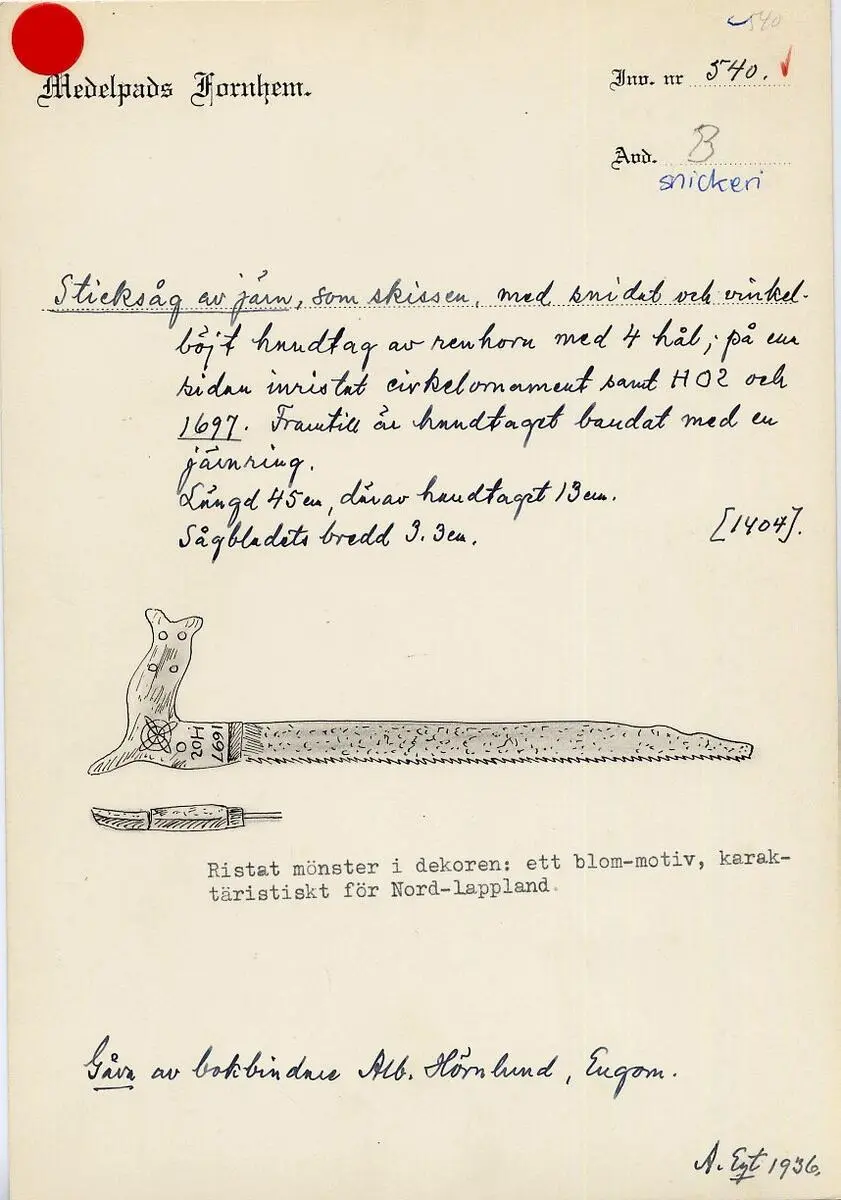 540
Medelpads Fornhem.
Inv. nr 540.
Avd. B
snickeri
Sticksåg av järn, som skissen, med snidat och vinkel-
böjt handtag av renhorn med 4 hål; på ena
sidan inristat cirkelornament samt HO2 och
1697. Framtill är handtaget bandat med en
järnring.
Längd 45 cm, därav handtaget 13 cm.
Sågbladets bredd 3.3 cm.
[1404].
HO2
1697
Ristat mönster i dekoren: ett blom-motiv, karak-
täristiskt för Nord-lappland.
Gåva av bokbindare Alb. Hörnlund, Eugom.
A. Eyt 1936.